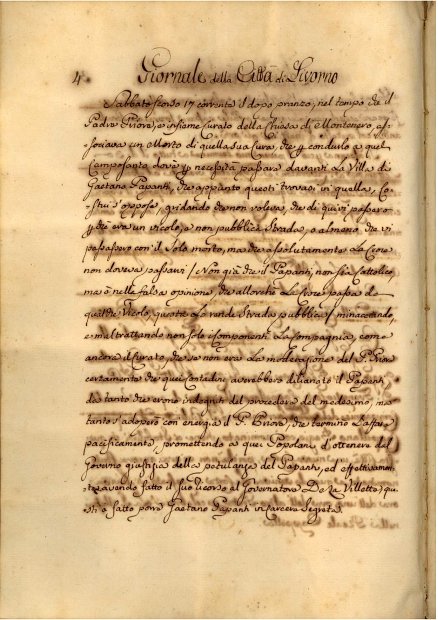 4. Giornale della Città di Livorno
Sabbato scorso 17 corrente dopo pranzo, nel tempo che il
Padre Priore, e insieme Curato della Chiesa di Montenero, as-
sociava un Morto di quella sua Cura, che per condurlo a quel
Camposanto dovè per necessità passare davanti La Villa di
Gaetano Papanti, che appunto questi trovavasi in quella, Co-
stui s'oppose, gridando che non voleva, che di quivi passassero
per che era un vicolo, e non pubblica Strada, o almeno che vi
passassero con il Solo morto, ma che assolutamente La Croce
non doveva passarvi / Non già che il Papanti, non sia Cattolico,
ma è nella falsa opinione, che allorchè La Croce passa da
qualche Vicolo, questo Lo rende Strada pubblica / minacciando,
e maltrattando non solo i Componenti La Compagnia, come
ancora il Curato, che se non era La moderazione del P. Priore
certamente che quei Contadini averebbero dilianato il Papanti,
da tanto che erono indegniti del procedere del medesimo, ma
tanto s'adoperò con energia il P. Priore, che terminò L'affare
pacificamente, promettendo a quei Popolani d'ottenere dal
Governo giustizia della petulanza del Papanti, ed effettivamen-
te avendo fatto il suo ricorso al Governatore De La Villette, que-
sti à fatto porre Gaetano Papanti in Carcere Segreta.